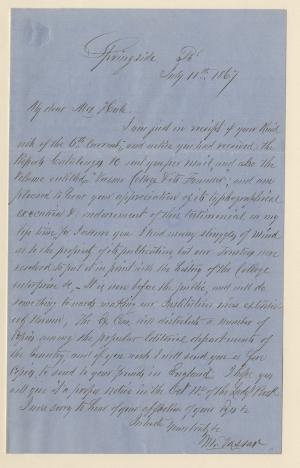 Springside, Po
July 11th, 1867
My dear Mrs Hale
I am just in receipt of your kind
note of the 6th Current, and notice you had received, the
Reports Catalogue, & sent you per mail and also the
Volume entitled, "Vassar College & its Founder", and am
pleased to hear your appreciation of its typographical
execution & endorsement of this testimonial in my
life time for I assure you I had many struggles of mind
as to the propriety of its publication but our Trustees was
resolved to put it in print with the history of the College
enterprise &c,. It is now before the public, and will do
something towards making our Institution more extensively
known, The Ex. Com. will distribute a number of
Copies among the popular Editorial departments of
the Country, and if you wish I will send you a few
Copies to send to your friends in England. I hope you
will give it a proper notice in the Oct No. of the Lady's Book
I was sorry to hear of your affection of your Eyes &c
In haste yours truly &c
M. Vassar